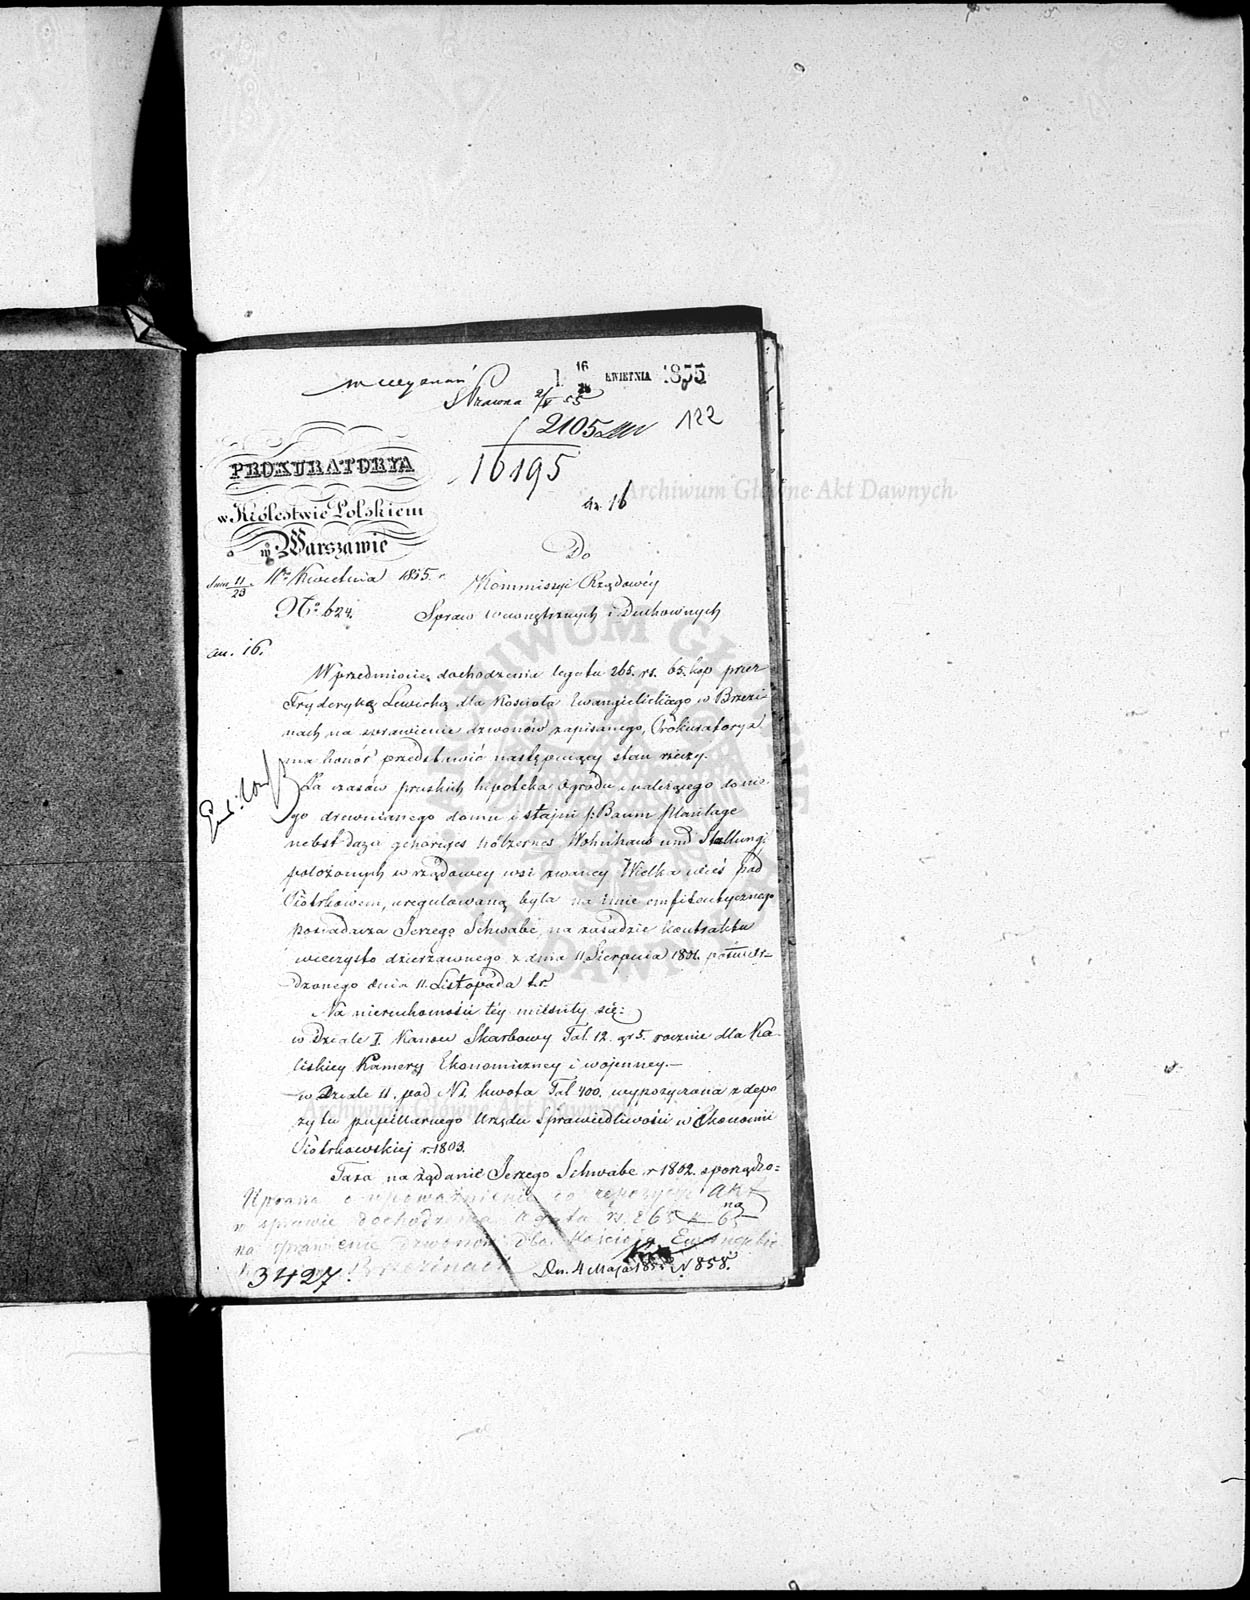 16
28 KWIETNIA 1855
Prawna 2/V 55
2105
122
16195
PROKURATORYA
w Królestwie Polskiem
w Warszawie
dnia 11/23 Kwietnia 1855 r.
No. 624.
an. 16
Do
Kommissyi Rządowéy
Spraw Wewnętrznych i Duchownych
an. 16.
W przedmiocie dochodzenia legatu 265. rs. 65. kop przez
Fryderykę Lewicką dla Kościoła Ewangielickiego w Brzezi
nach na sprawienie dzwonów zapisanego, Prokuratorya
ma honór przedstawić następujący stan rzeczy.
Za czasów pruskich hipoteka Ogrodu i należącego do nie-
go drewnianego domu i stajni /: Baum Plantage
nebst dazu gehöriges hölzernes Wohnhaus und Stallung :/
położonych w rządowey wsi zwaney Wielka wieś pod
Piotrkowem, uregulowaną była na imie emfiteutycznego
posiadacza Jerzego Schwabe, na zasadzie kontraktu
wieczysto dzierżawnego z dnia 11 Sierpnia 1801. potwier-
dzonego dnia 11. Listopada t.r.
Na nieruchomości téy mieściły się:
w Dziale I. Kanon Skarbowy Tal. 12. gr 5. rocznie dla Ka-
liskiey Kamery Ekonomiczney i wojenney.—
w Dziale II. pod No 1. kwota Tal 400. wypożyczona z depo
zytu pupillarnego Urzędu Sprawiedliwości w Ekonomii
Piotrkowskiej r. 1803.
Taxa na żądanie Jerzego Schwabe r 1802. sporządzo=
na
Uprasza o upoważnienie do repozycyi akt
w sprawie dochodzenia legatu rs. 265 k. 65
na sprawienie dzwonów dla Kościoła Ewangelic
w Brzezinach
3427.
Dn. 4 Maja 1855 N 858.
Archiwum Główne Akt Dawnych
Archiwum Główne Akt Dawnych
ARCHIWUM GŁÓWNE AKT DAWNYCH